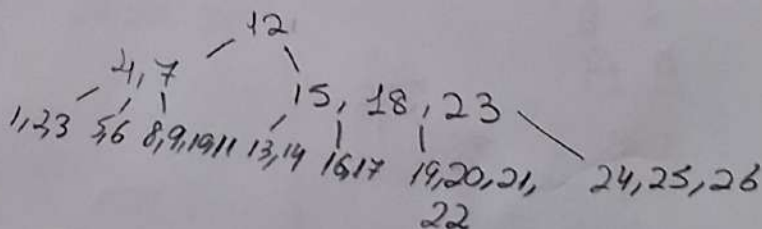 12
4,7
15, 18, 23
1,2,3 5,6 8,9,10,11 13,14 16,17 19,20,21, 24,25,26
22